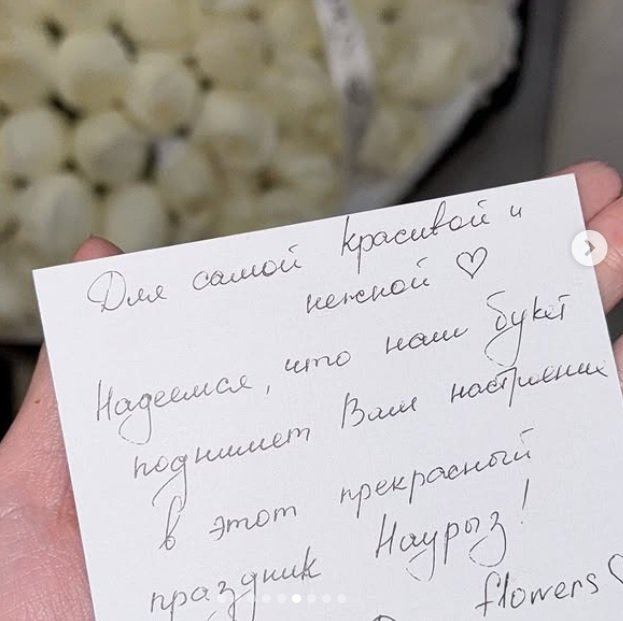 Для самой красивой и
нежной ♡
Надеемся, что наш букет
поднимет Вам настроение
в этот прекрасный
праздник Наурыз!
flowers ♡